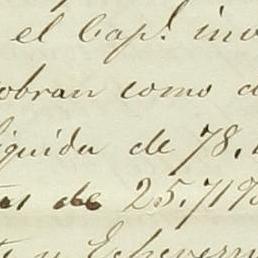 el Cap.l inv
obran como
iquida de 78.
tas de 25.719
y Echeverr